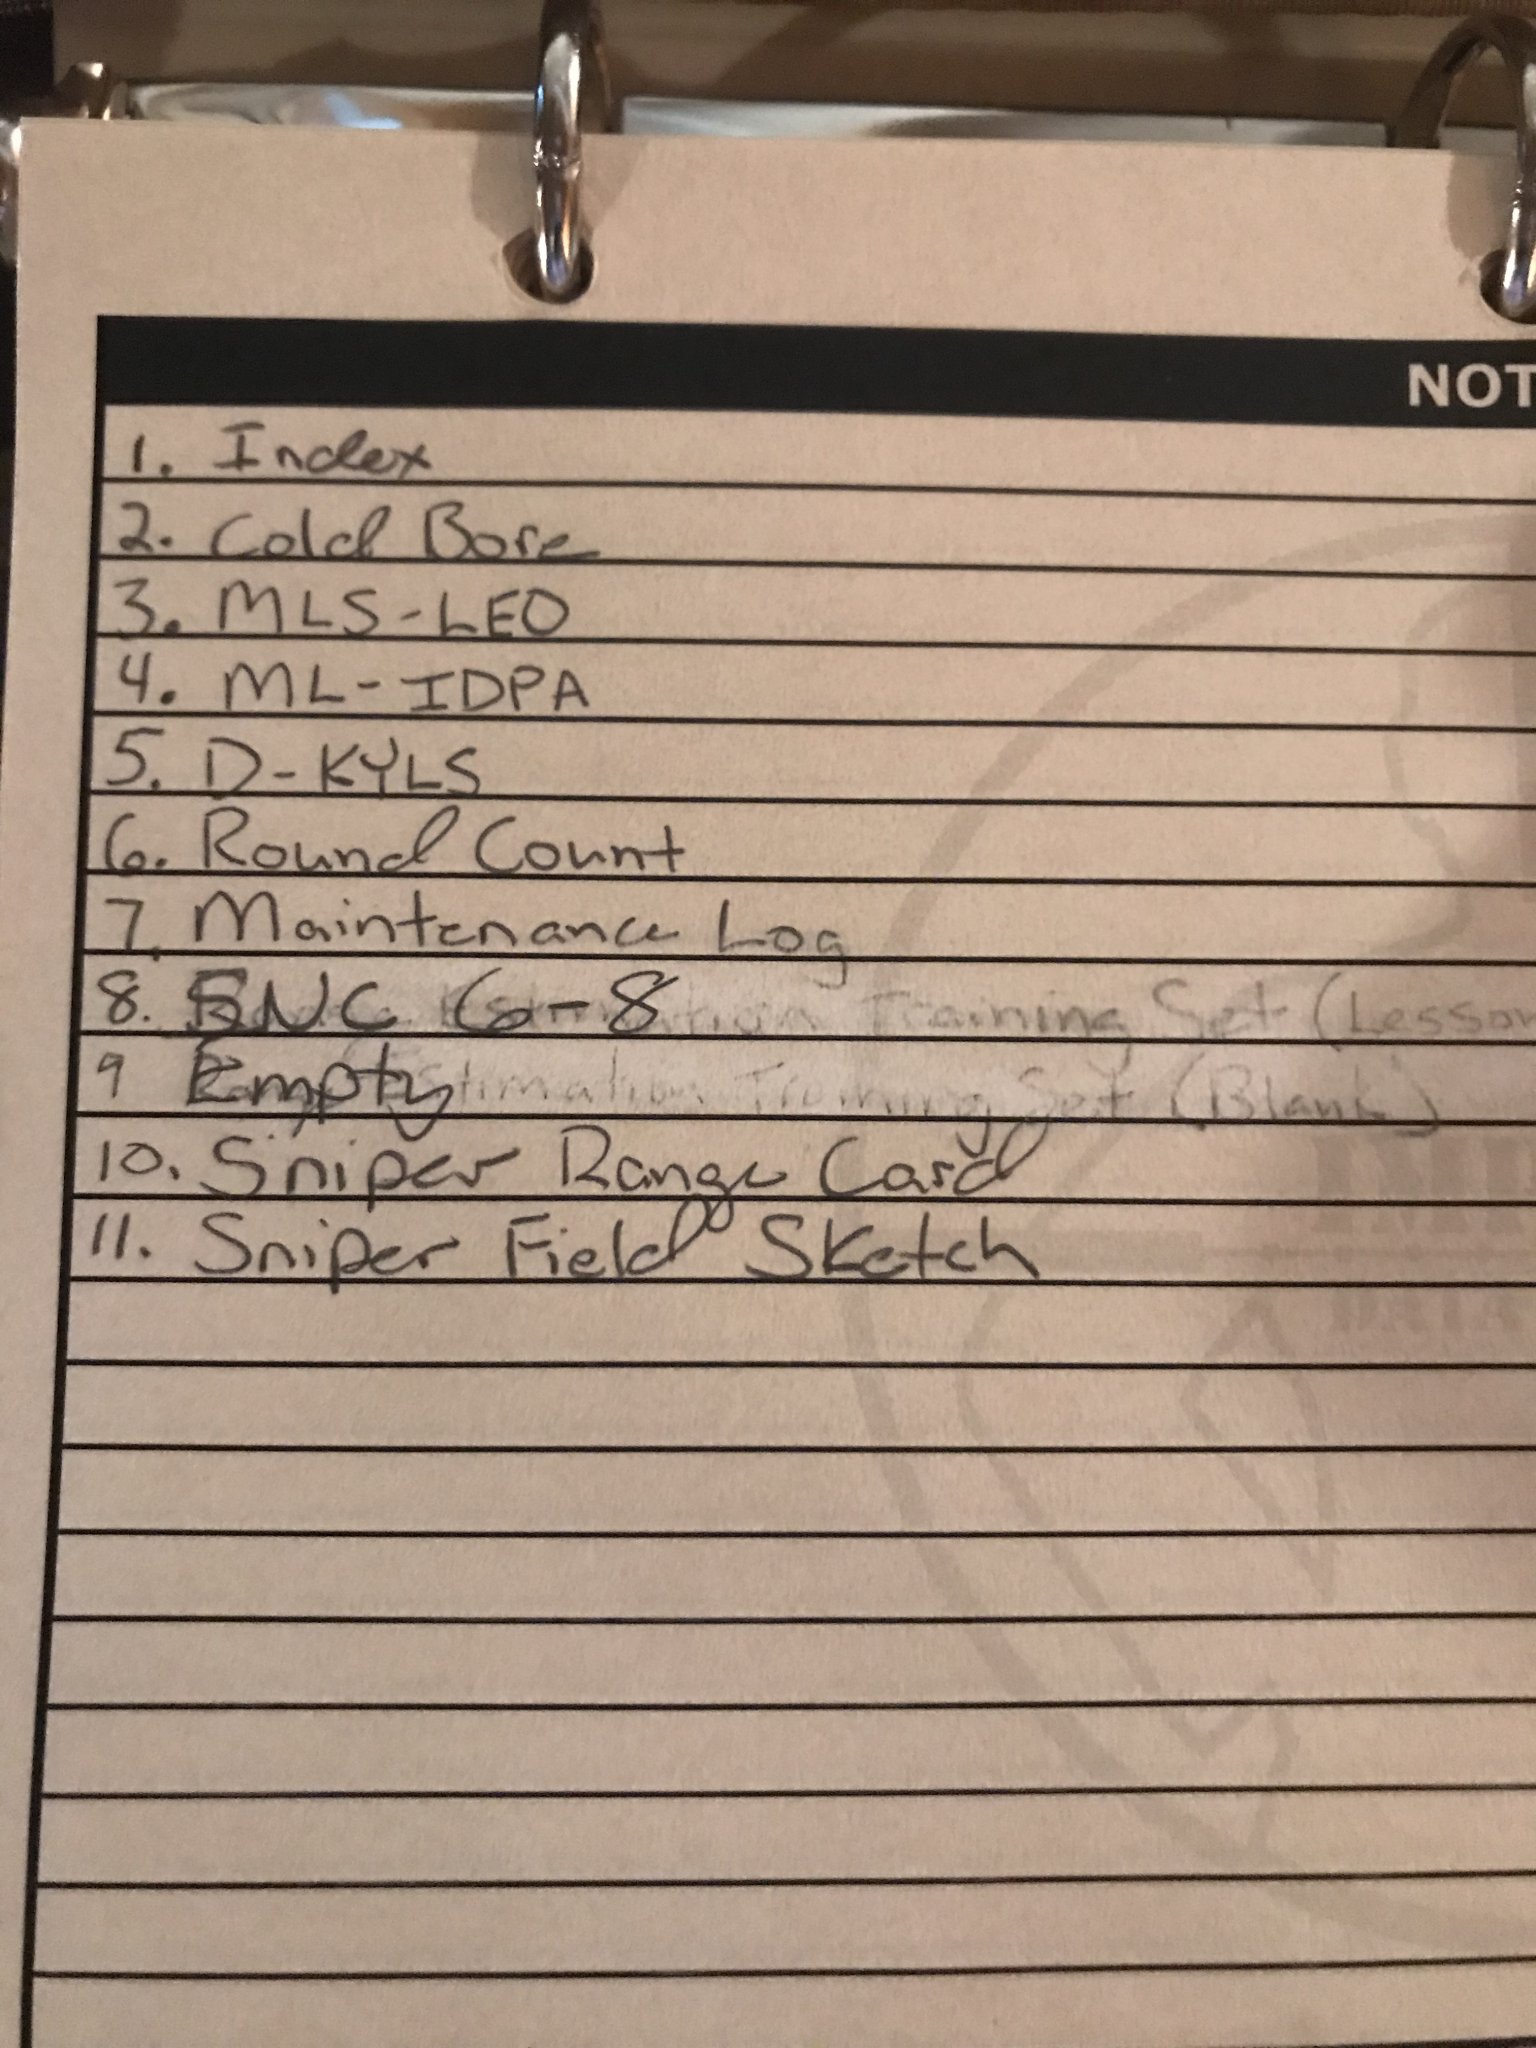 NOT
1. Index
2. Cold Bore
3. MLS-LEO
4. ML-IDPA
5. D-KYLS
6. Round Count
7. Maintenance Log
8. ENC 6-8 Estimation Training Set (Lesson
9 Empty Estimation Training Set (Blank)
10. Sniper Range Card
11. Sniper Field Sketch